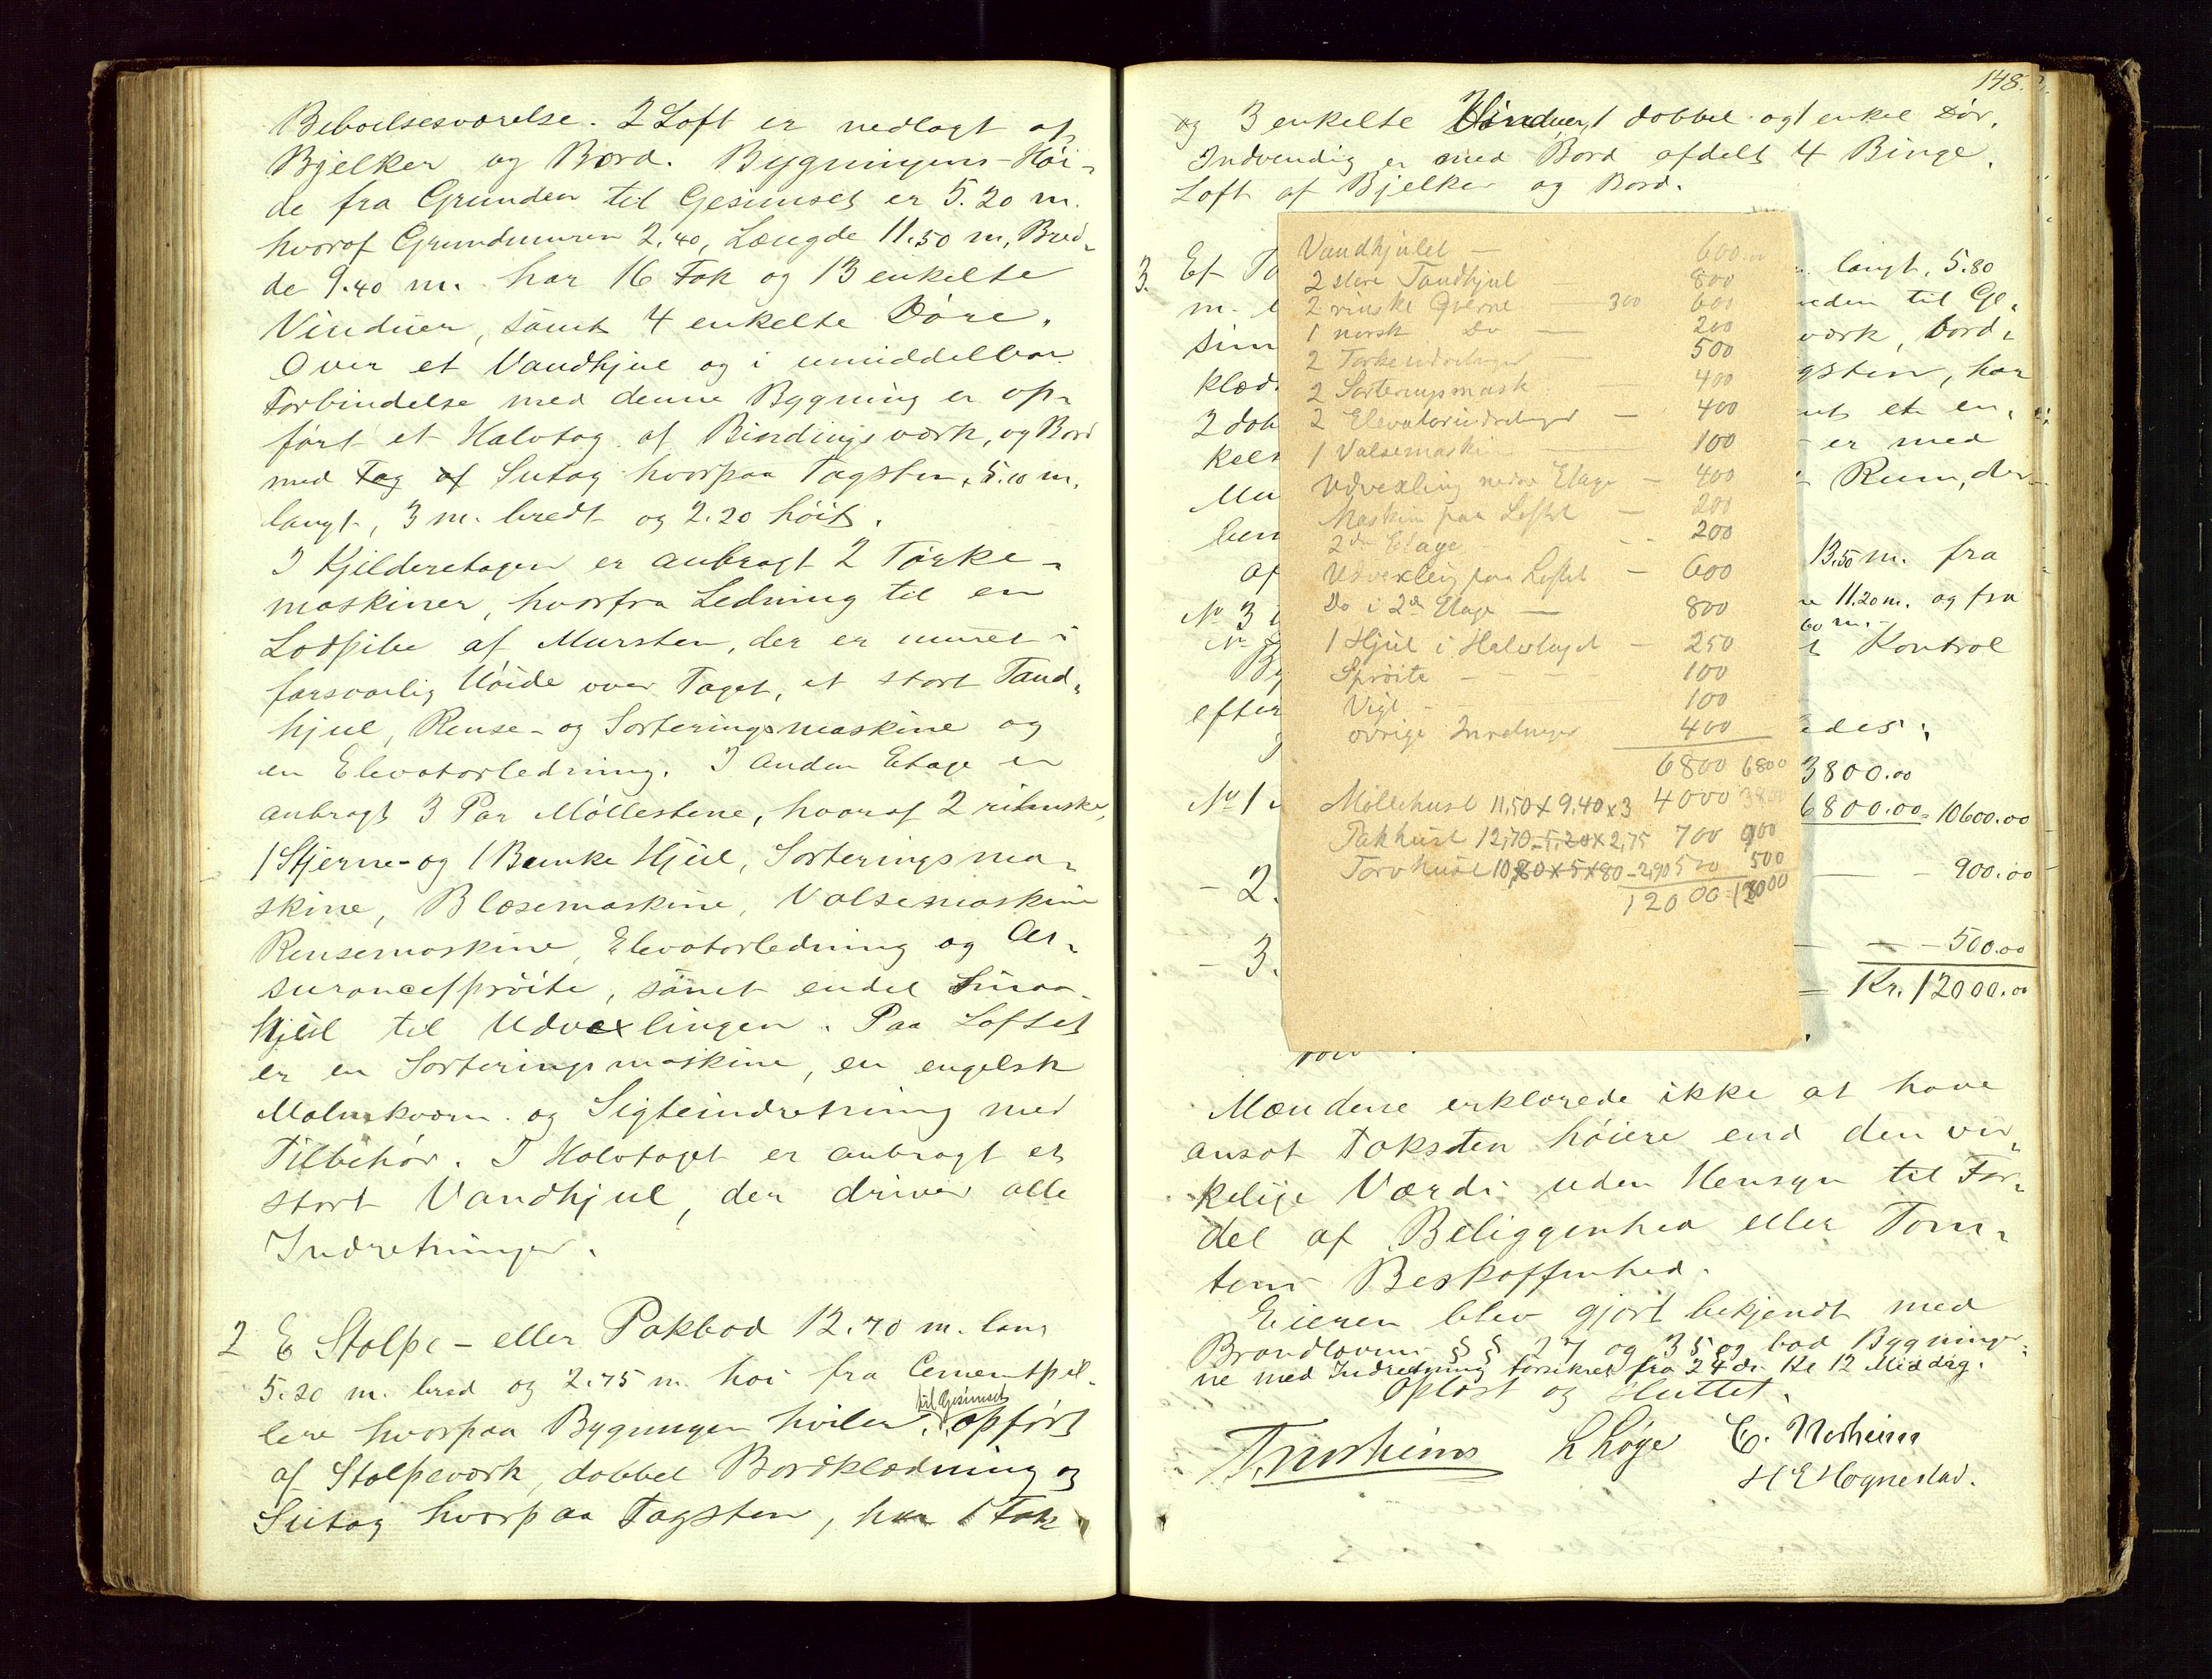 Beboelsesværelse. 2 Loft er nedlagt af
Bjelker og Bord. Bygningens Høi-
de fra Grunden til Gesimset er 5.20 m.
hvoraf Grundmuren 2.40, Længde 11.50 m, Bred-
de 9.40 m. har 16 Fak og 13 enkelte
Vinduer, samt 4 enkelte Døre.
Over et Vandhjul og i umiddelbar
Forbindelse med denne Bygning er op-
ført et Halvtag af Bindingsværk, og Bord
med Tag af Sutag hvorpaa Tagsten, 5.10 m.
langt, 3 m. bredt og 2.20 høit.
I Kjelderetagen er anbragt 2 Tørke-
maskiner, hvorfra Ledning til en
Lodpibe af Mursten, der er muret i
forsvarlig Høide over Taget, et stort Tand-
hjul, Rense- og Sorteringsmaskine og
en Elevatorledning. I Anden Etage er
anbragt 3 Par Møllestene, hvoraf 2 rihnske,
1 Stjerne- og 1 Bunke Hjul, Sorteringsma-
skine, Blæsemaskine, Valsemaskine
Rensemaskine, Elevatorledning og As-
surancesprøite, samt endel Smaa-
Hjul til Udvexlingen. Paa Loftet
er en Sorteringsmaskine, en engelsk
Malmkværn og Sigteindretning med
Tilbehør. I Halvtaget er anbragt et
stort Vandhjul, der driver alle
Indretninger.
2 E Stolpe- eller Pakbod 12.70 m. lang
5.20 m. bred og 2.75 m. høi fra Cementpil-
til Gesimset
lere hvorpaa Bygningen hviler, opført
af Stolpeværk, dobbel Bordklædning og
Sutag hvorpaa Tagsten, har 1 Fak
148.
og 3 enkelte Vinduer, 1 dobbel og 1 enkel Dør.
Indvendig er med Bord afdelt 4 Binge.
Loft af Bjelker og Bord.
3. Et To
langt, 5.80
m.
til Ge-
sim
værk, bord-
klæd
gsten, har
2 dob
et en-
kelt
er med
Mu
Rum, der
af
13.50 m. fra
No 3
11.20 m. og fra
60 m.
By
Kontrol
efter
edes:
3800.00
No 1
6800.00 = 10600.00
- 2.
- 900.00
- 3.
- 500.00
Kr. 12000.00
Vandhjulet - 600.00
2 store Tandhjul 800
2 rinske Qverne 300 600
1 norsk Do - 200
2 Tørkeindretninger - 500
2 Sorteringsmask 400
2 Elevatorindretninger - 400
1 Valsemaskin 100
Udvexling nedre Etage - 400
Maskin paa Loftet - 200
2den Etage - 200
Udvexling paa Loftet - 600
Do i 2den Etage - 800
1 Hjul i Halvtaget - 250
Sprøite - 100
Vigt - 100
øvrige Inredninger 400
6800 6800
Møllehuset 11.50 x 9.40 x 3 4000 3800
Pakhuset 12.70 - 5.20 x 2.75 700 900
Torvhuset 10,80 x 5 x 80 - 2.90 500 500
12000 12000
Mændene erklærede ikke at have
ansat Taksten høiere end den vir-
kelige Værdi uden Hensyn til For-
del af Beliggenhed eller Tom-
tens Beskaffenhed.
Eieren blev gjort bekjendt med
Brandlovens §§ 27 og 35 og bad Bygninger-
ne med Indredning forsikret fra 24 ds. Kl 12 Middag.
Oplæst og Sluttet.
T. Norheim L Løge E. Norheim
H E Hognestad.